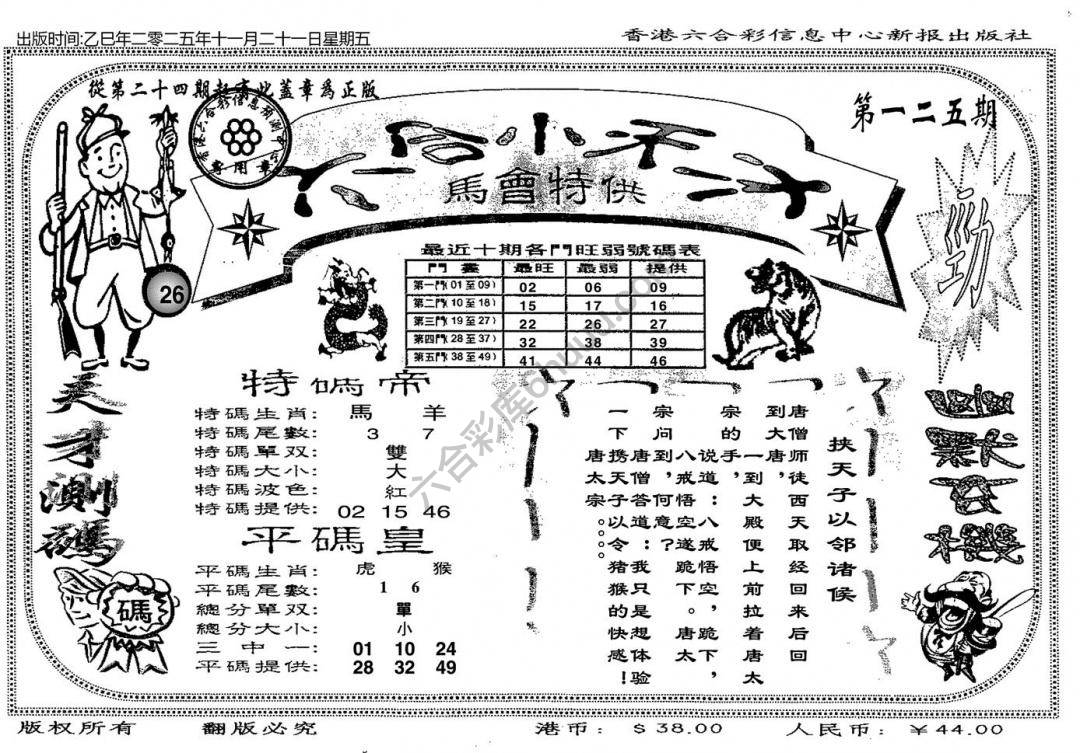 出版时间:乙巳年二零二五年十一月二十一日星期五
香港六合彩信息中心新报出版社
從第二十四期起有此蓋章爲正版
第一二五期
馬會特供
專用章
26
勁
最近十期各門旺弱號碼表
門畫 最旺 最弱 提供
第一門(01至09) 02 06 09
第二門(10至18) 15 17 16
第三門(19至27) 22 26 27
第四門(28至37) 32 38 39
第五門(38至49) 41 44 46
天才測碼
碼
特碼帝
特碼生肖: 馬 羊
特碼尾數: 3 7
特碼單双: 雙
特碼大小: 大
特碼波色: 紅
特碼提供: 02 15 46
平碼皇
平碼生肖: 虎 猴
平碼尾數: 1 6
總分單双: 單
總分大小: 小
三中一: 01 10 24
平碼提供: 28 32 49
挟天子以邻诸候
唐僧师徒西天取经回来后回
到大唐，
一到大殿便上前拉着唐太
宗的手，
说道：八戒悟空，跪下，
八戒，悟空遂跪下。唐太
宗问到，何意？
唐僧答道：我只是想体验
一下携天子以令猪猴的快感！
唐太宗。。。
六合彩库6huuu.com
版权所有
翻版必究
港币: $ 38.00
人民币: ¥ 44.00